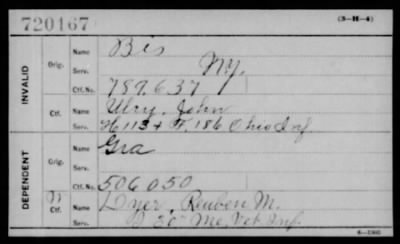 720167
(3-H-4)
INVALID
Orig.
Name Bis
Serv. Ny.
Ctf. No. 787.637
Ctf.
Name Ulry, John
Serv. H 113 & F, 186 Ohio Inf
DEPENDENT
Orig.
Name Gra
Serv.
Ctf. No. 506050
Ctf.
Name Dyer, Reuben M.
Serv. D 30" Me. Vet Inf.